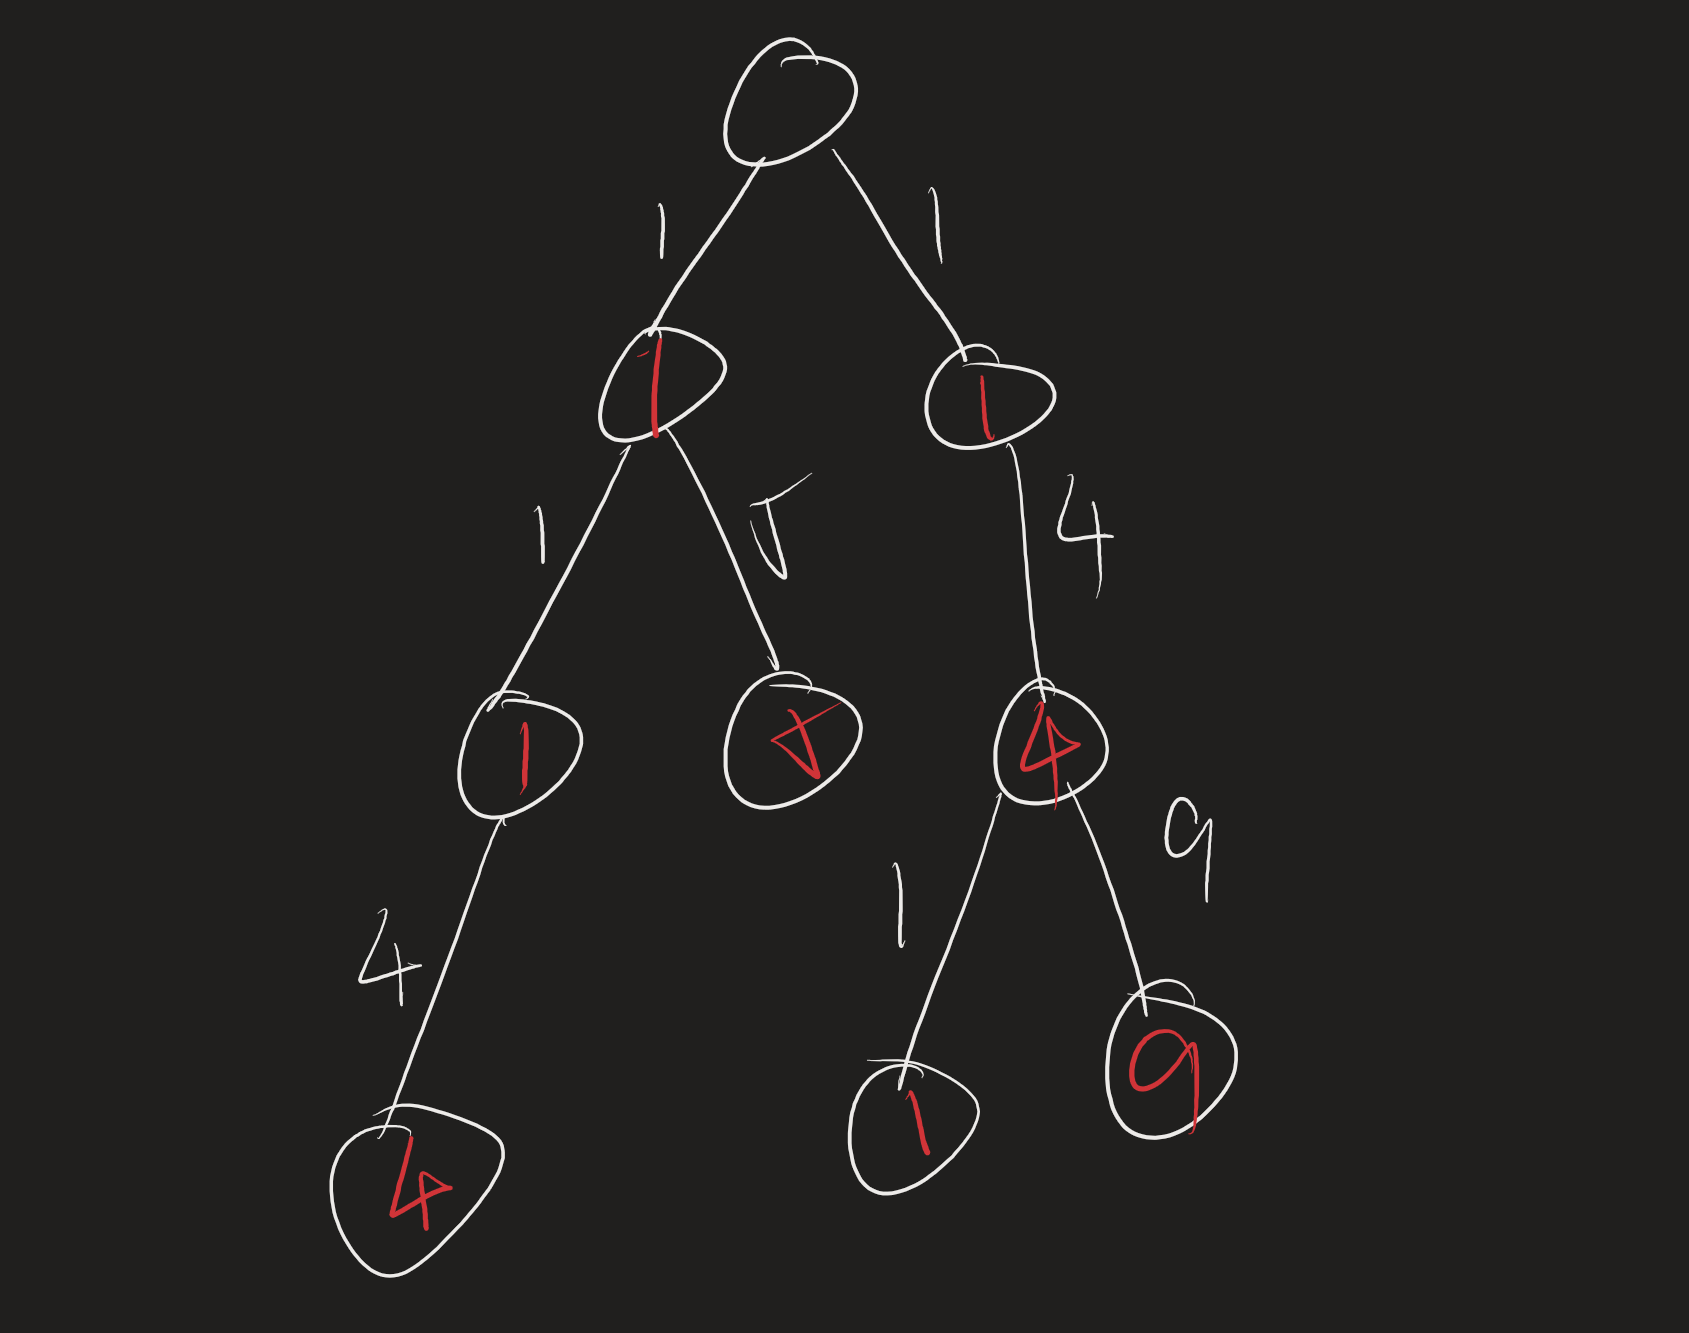 1 1
1 1
1 5 4
1 5 4
4 1 9
4 1 9